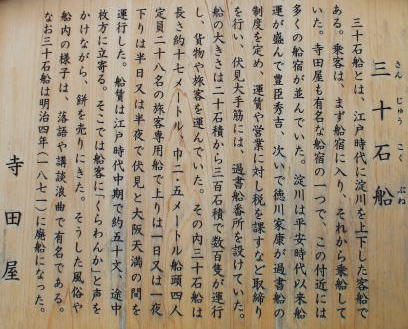 さん じゅう こく ぶね
三十石船
三十石船とは、江戸時代に淀川を上下した客船で
ある。乗客は、まず船宿に入り、それから乗船して
いた。寺田屋も有名な船宿の一つで、この付近には
多くの船宿が並んでいた。淀川は平安時代以来船
運が盛んで豊臣秀吉、次いで徳川家康が過書船の
制度を定め、運賃や営業に対し税を課すなど取締り
を行い、伏見大手筋には、過書船番所を設けていた。
船の大きさは二十石積から三百石積で数百隻が運行
し、貨物や旅客を運んでいた。その内三十石船は
長さ約十七メートル、巾二・五メートル船頭四人
定員二十八名の旅客専用船で上りは一日又は一夜
下りは半日又は半夜で伏見と大阪天満の間を
運行した。船賃は江戸時代中期で約五十文、途中
枚方に立寄る。そこでは船客に「くらわんか」と声を
かけながら、餅を売りにきた。そうした風俗や
船内の様子は、落語や講談浪曲で有名である。
なお三十石船は明治四年（一八七一）に廃船になった。
寺田屋